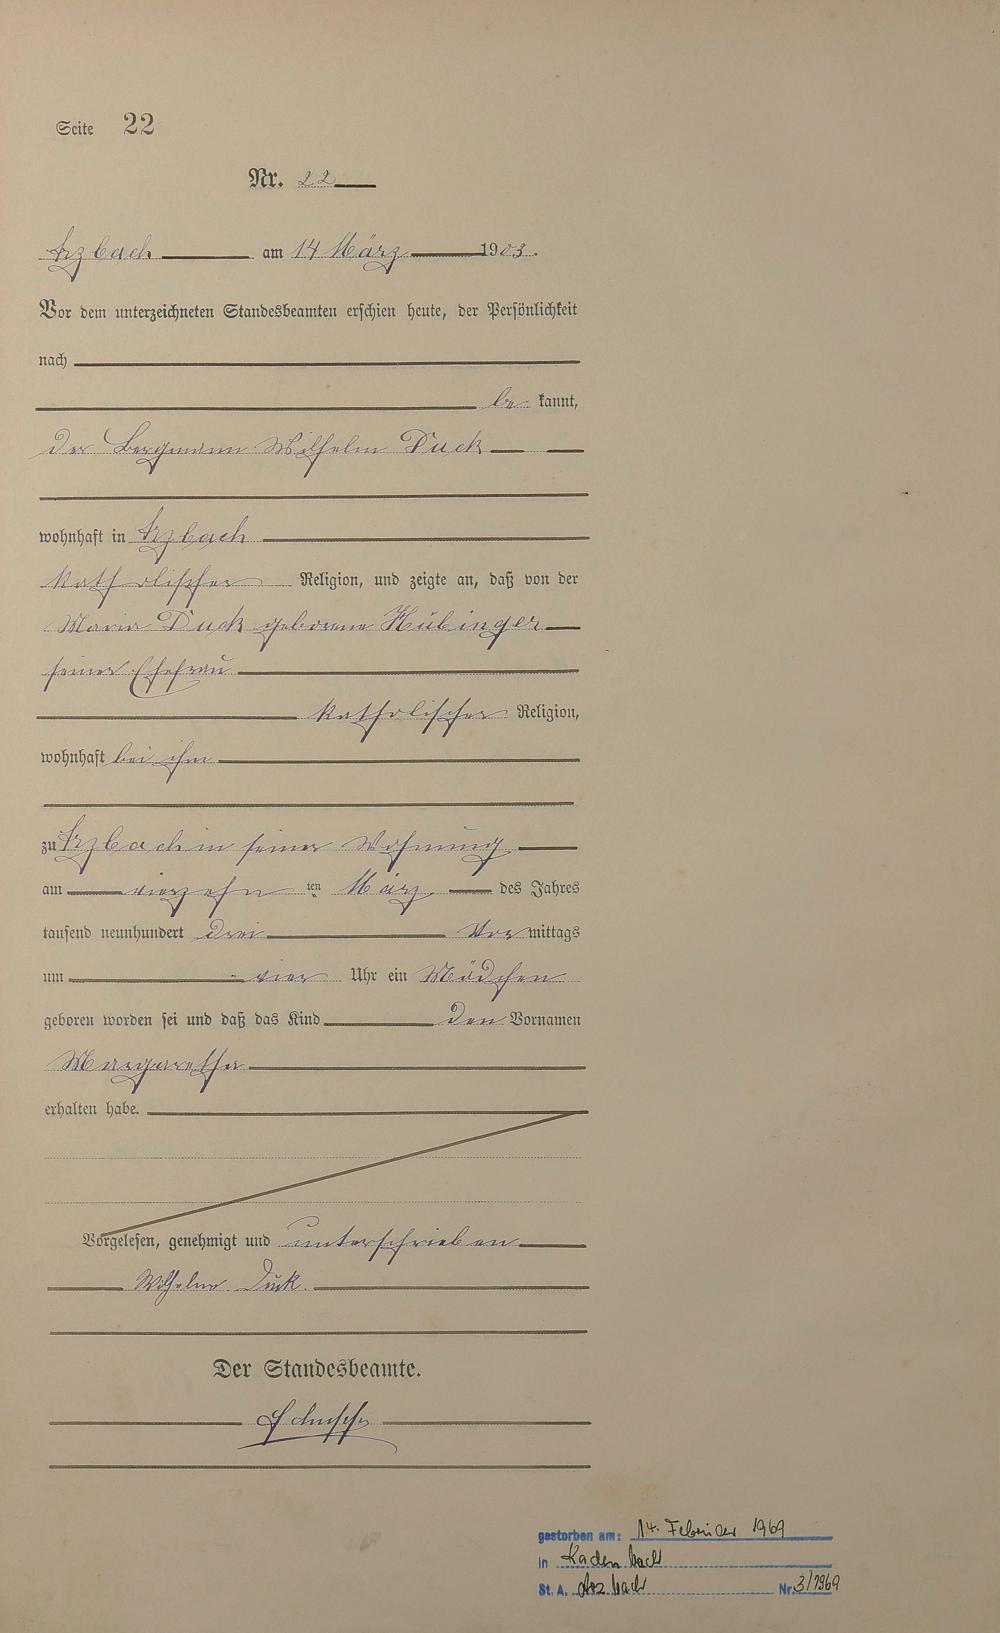 Seite 22
Nr. 22
Arzbach am 14 März 1903.
Vor dem unterzeichneten Standesbeamten erschien heute, der Persönlichkeit
nach
be kannt,
der Bergmann Wilhelm Duck
wohnhaft in Arzbach
katholischer Religion, und zeigte an, daß von der
Maria Duck geborene Hübinger
seiner Ehefrau
katholischer Religion,
wohnhaft bei ihm
zu Arzbach in seiner Wohnung
am vierzehn ten März des Jahres
tausend neunhundert drei Vor mittags
um vier Uhr ein Mädchen
geboren worden sei und daß das Kind den Vornamen
Margaretha
erhalten habe.
Vorgelesen, genehmigt und unterschrieben
Wilhelm Duck
Der Standesbeamte.
gestorben am: 14. Februar 1969
in Kadenbach
St. A. Arzbach Nr. 3/1969